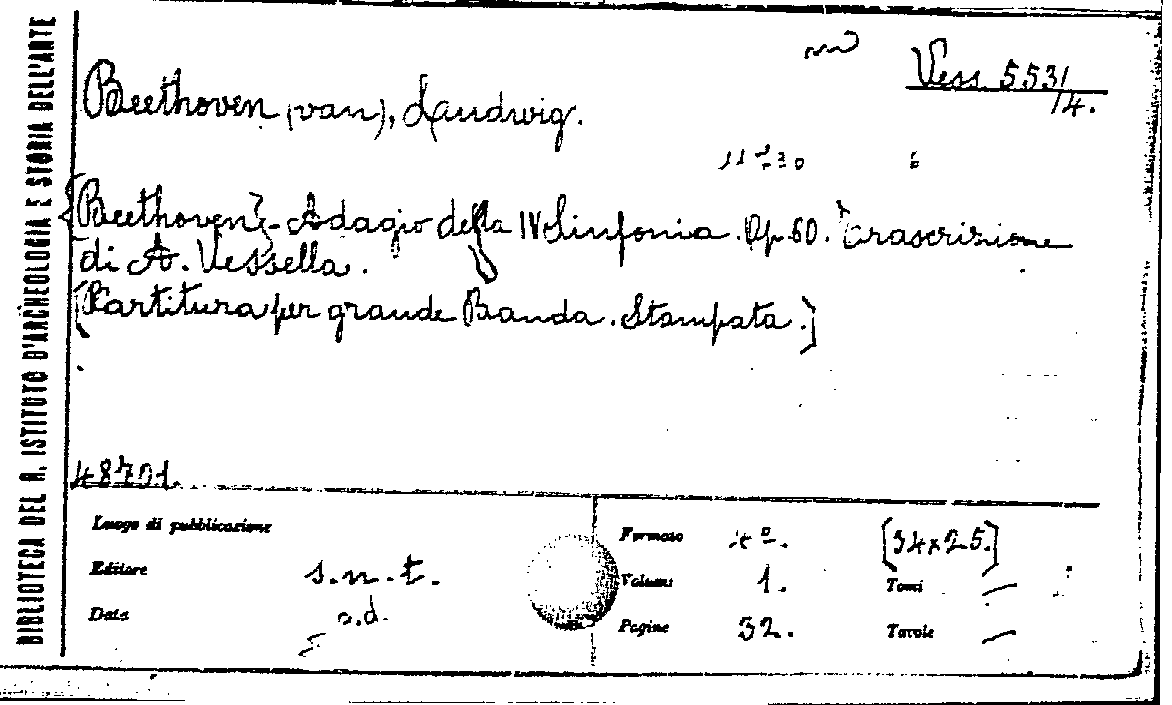 BIBLIOTECA DEL R. ISTITUTO D'ARCHEOLOGIA E STORIA DELL'ARTE
Vess. 553/14.
Beethoven (van), Laudwig.
[Beethoven] - Adagio della IV Sinfonia. Op. 60. Trascrizione
di A. Vessella.
[Partitura per grande Banda. Stampata.]
48701.
Luogo di pubblicazione
Editore s.n.t.
Data s.d.
Formato 4º. [34x25.]
Volumi 1. Tomi —
Pagine 32. Tavole —